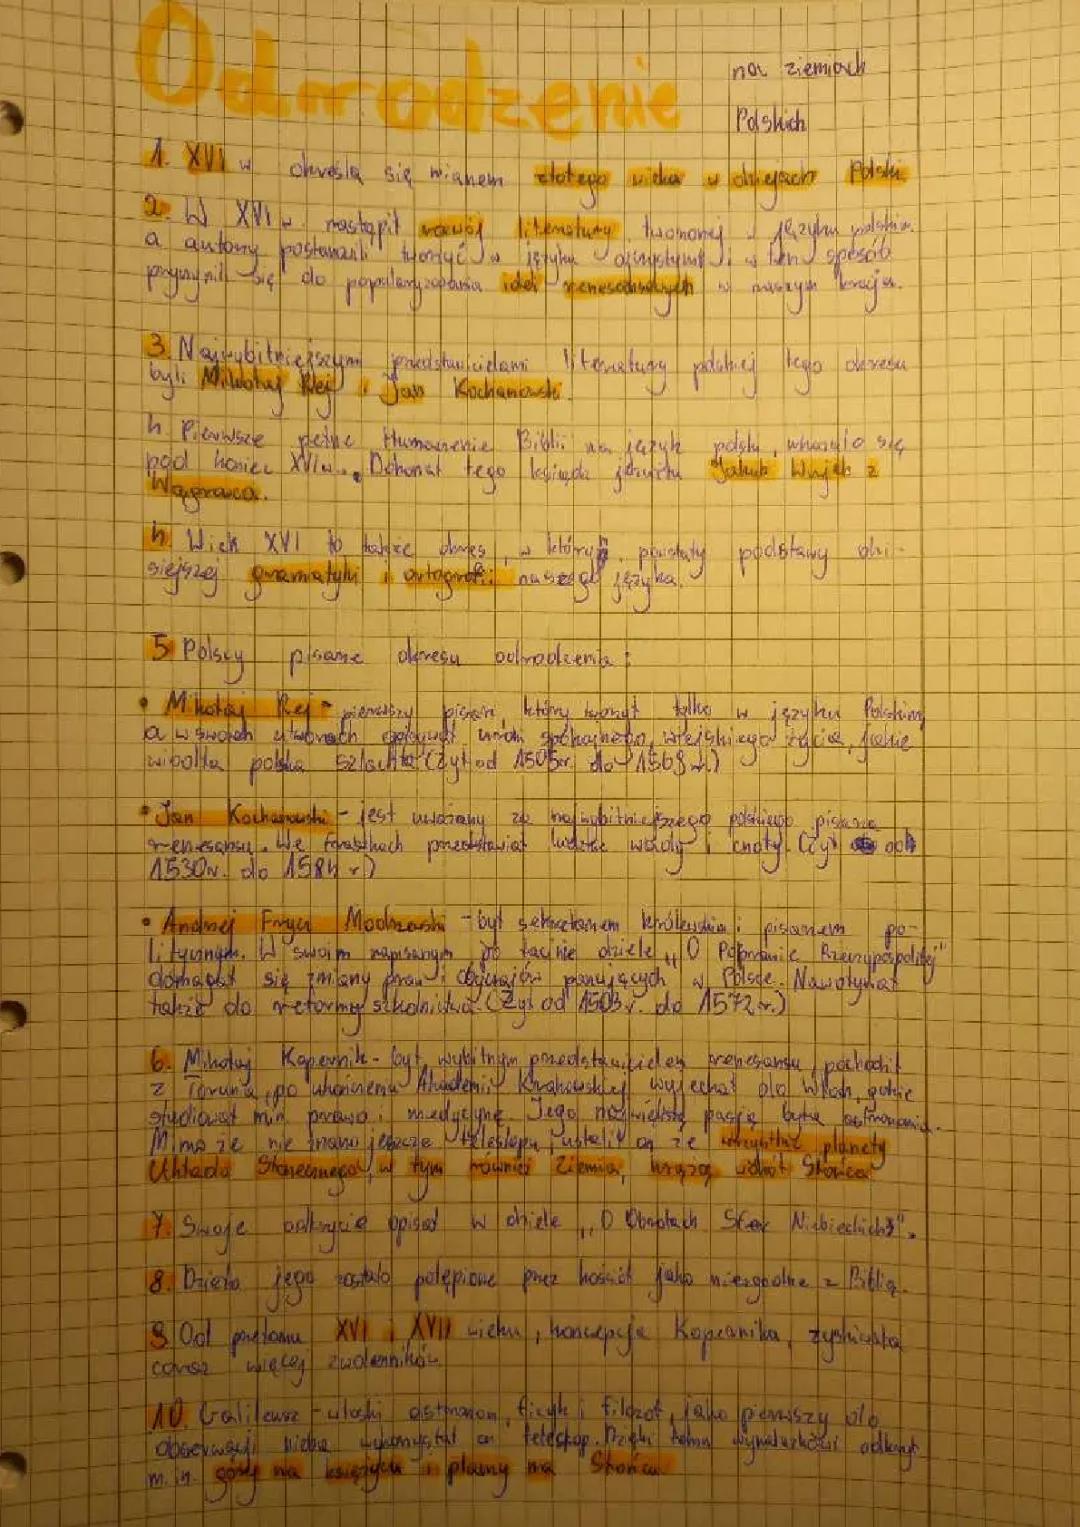 Odrodzenie na ziemiach
Polskich
1. XVI w określa się mianem złotego wieku w dziejach Polski.
2. W XVI w. nastąpił rozwój literatury tworzonej w języku polskim.
a autorzy postanowili tworzyć w języku ojczystym i w ten sposób
przyczynili się do popularyzowania idei renesansowych w naszym kraju.
3. Najwybitniejszymi przedstawicielami literatury polskiej tego okresu
byli Mikołaj Rej i Jan Kochanowski.
4. Pierwsze pełne tłumaczenie Biblii na język polski, ukazało się
pod koniec XVI w. Dokonał tego ksiądz jezuita Jakub Wujek z
Wągrowca.
4. Wiek XVI to także okres, w którym powstały podstawy dzi-
siejszej gramatyki i ortografii naszego języka.
5. Polscy pisarze okresu odrodzenia:
• Mikołaj Rej - pierwszy pisarz, który tworzył tylko w języku Polskim,
a w swoich utworach opisywał uroki spokojnego, wiejskiego życia, jakie
wiodła polska szlachta (żył od 1505r. do 1569r.)
• Jan Kochanowski - jest uważany za najwybitniejszego polskiego pisarza
renesansu. We fraszkach przedstawiał ludzkie wady i cnoty. (żył od
1530r. do 1584 r)
• Andrzej Frycz Modrzewski - był sekretarzem królewskim i pisarzem po-
litycznym. W swoim napisanym po łacinie dziele „O Poprawie Rzeczypospolitej"
domagał się zmiany praw i obyczajów panujących w Polsce. Nawoływał
także do reformy szkolnictwa. (Żył od 1503r. do 1572r.)
6. Mikołaj Kopernik - był wybitnym przedstawicielem renesansu, pochodził
z Torunia, po ukończeniu Akademii Krakowskiej wyjechał do Włoch, gdzie
studiował m.in. prawo i medycynę. Jego największą pasją była astronomia.
Mimo że nie znano jeszcze teleskopu, ustalił on że wszystkie planety
Układu Słonecznego, w tym również Ziemia, krążą wokół Słońca
7. Swoje odkrycie opisał w dziele „O Obrotach Sfer Niebieskich".
8. Dzieło jego zostało potępione przez kościół jako niezgodne z Biblią.
9. Od przełomu XVI i XVII wieku, koncepcja Kopernika, zyskiwała
coraz więcej zwolenników
10. Galileusz - włoski astronom, fizyk i filozof, jako pierwszy do
obserwacji nieba wykorzystał on teleskop. Dzięki temu wynalazkowi odkrył
m.in. góry na księżycu i plamy na Słońcu